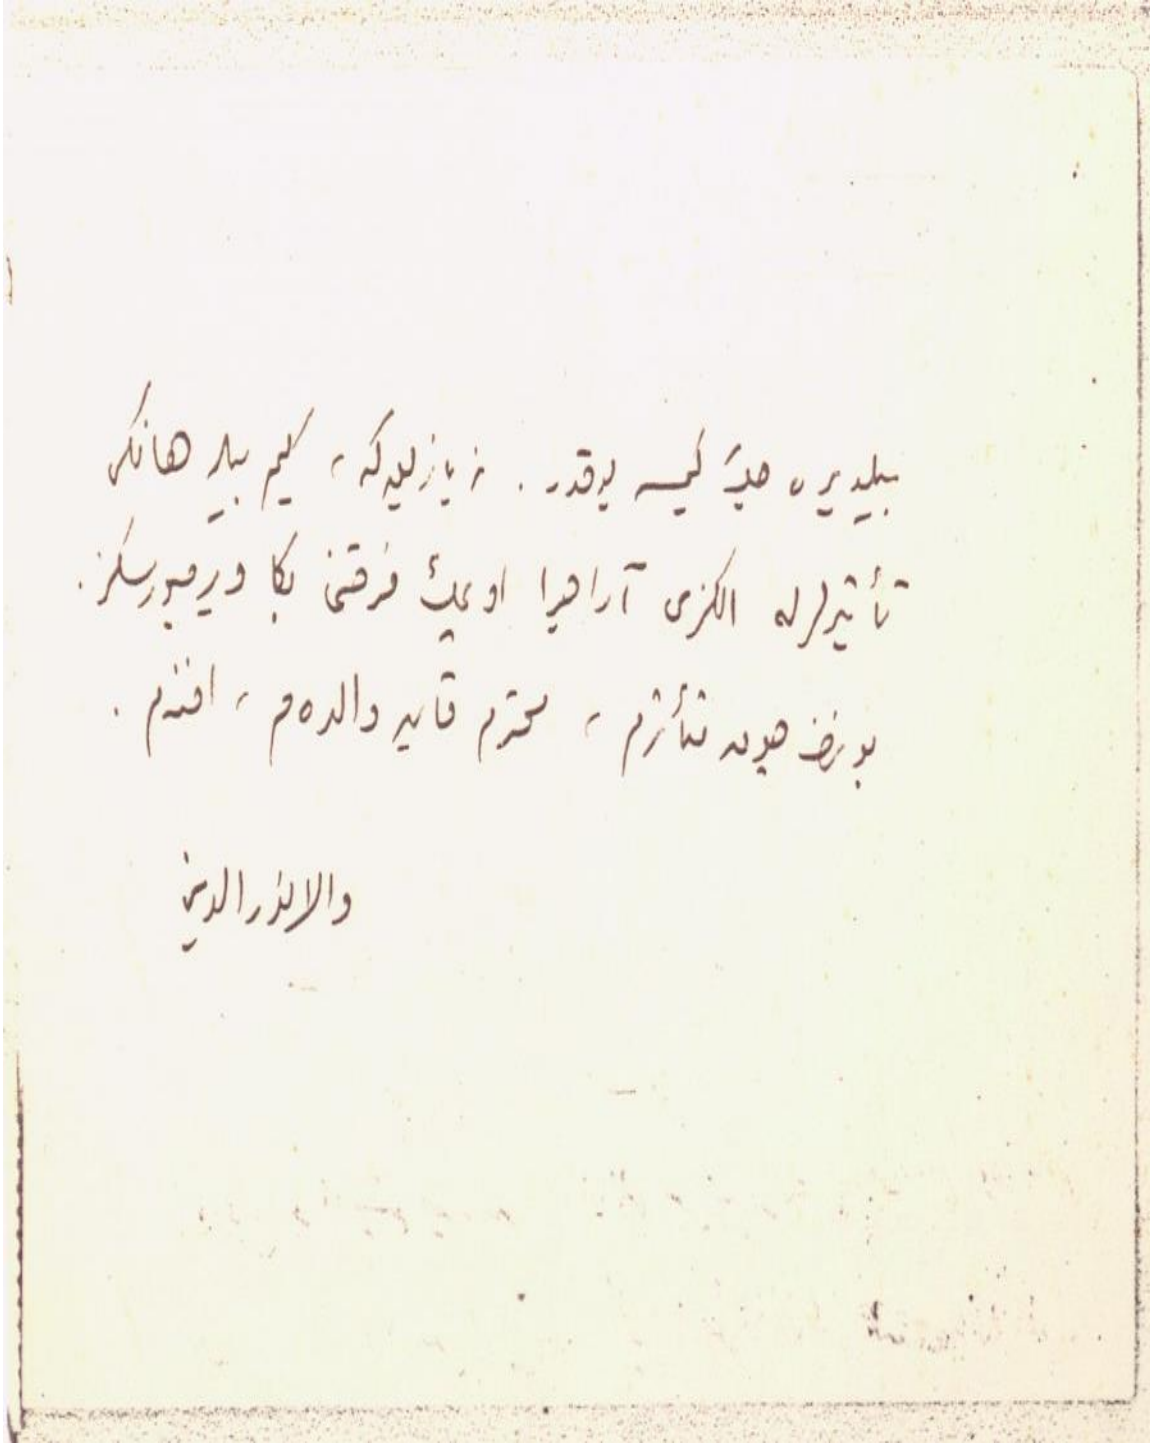 بیلدیره جك كیمسه یوقدر . نه یازیقدركه ، كیم بیلیر هانكی
تأثیرلرله الكزی آرا صیرا اوپمك فرصتنی بكا ویرمیورسكز .
بو یوزدن چوق متأثرم ، محترم قاین والدەم ، افندم .
والا نورالدین